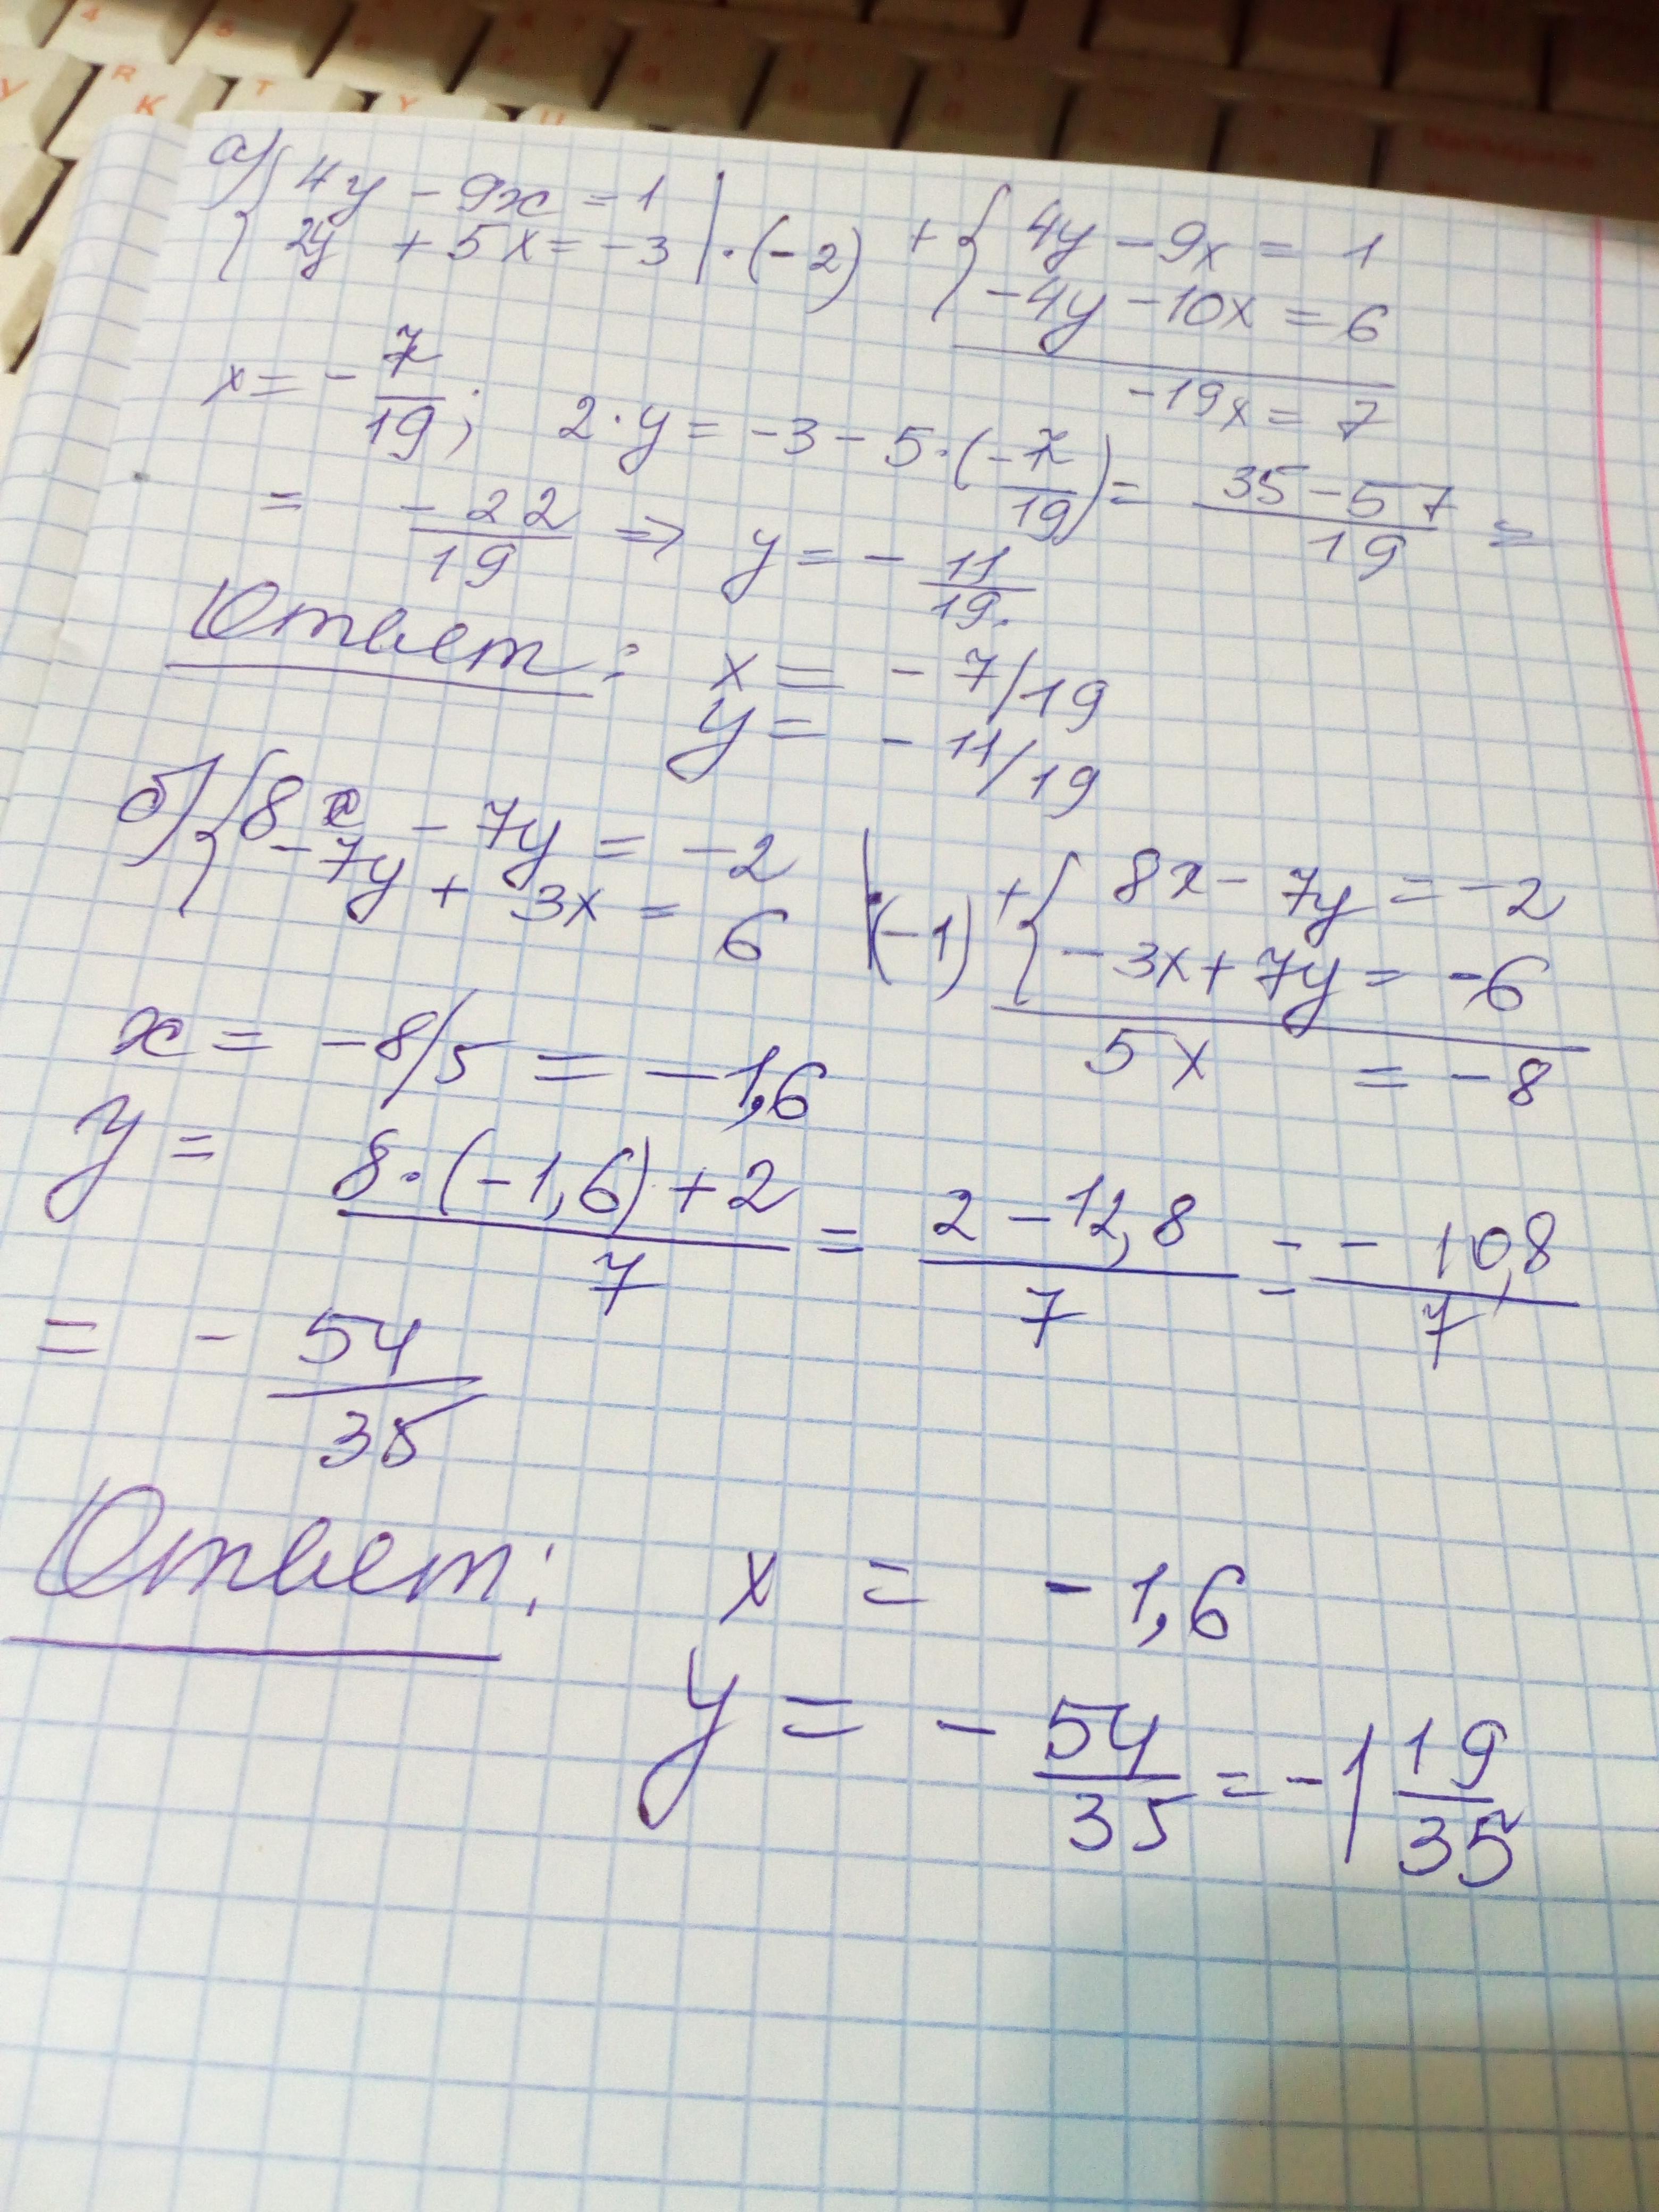 а) { 4y - 9x = 1
2y + 5x = -3 | · (-2)
+ { 4y - 9x = 1
-4y - 10x = 6
-19x = 7
x = - 7/19 ; 2·y = -3 - 5·(- 7/19) = (35 - 57)/19 =
= -22/19 ⇒ y = - 11/19.
Ответ: x = - 7/19
y = - 11/19
б) { 8x - 7y = -2
-7y + 3x = 6 | · (-1)
+ { 8x - 7y = -2
-3x + 7y = -6
5x = -8
x = -8/5 = -1,6
y = (8·(-1,6) + 2)/7 = (2 - 12,8)/7 = - 10,8/7
= - 54/35
Ответ: x = -1,6
y = - 54/35 = -1 19/35